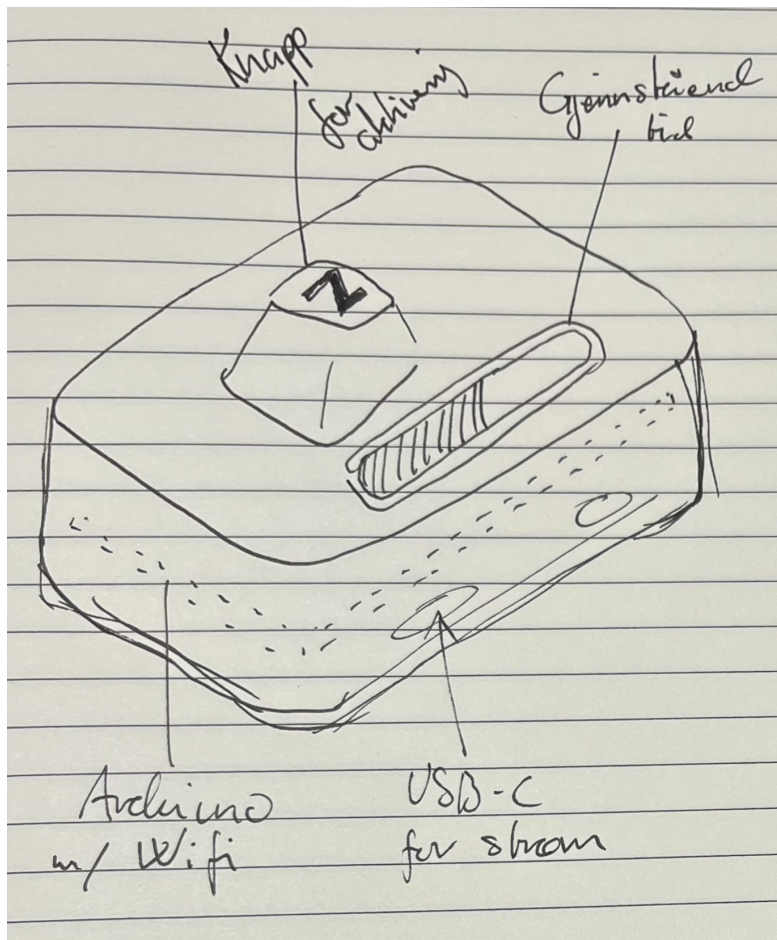 Knapp
for
Gjennstående
tid
Z
Arduino
m/ Wifi
USB-C
for strøm